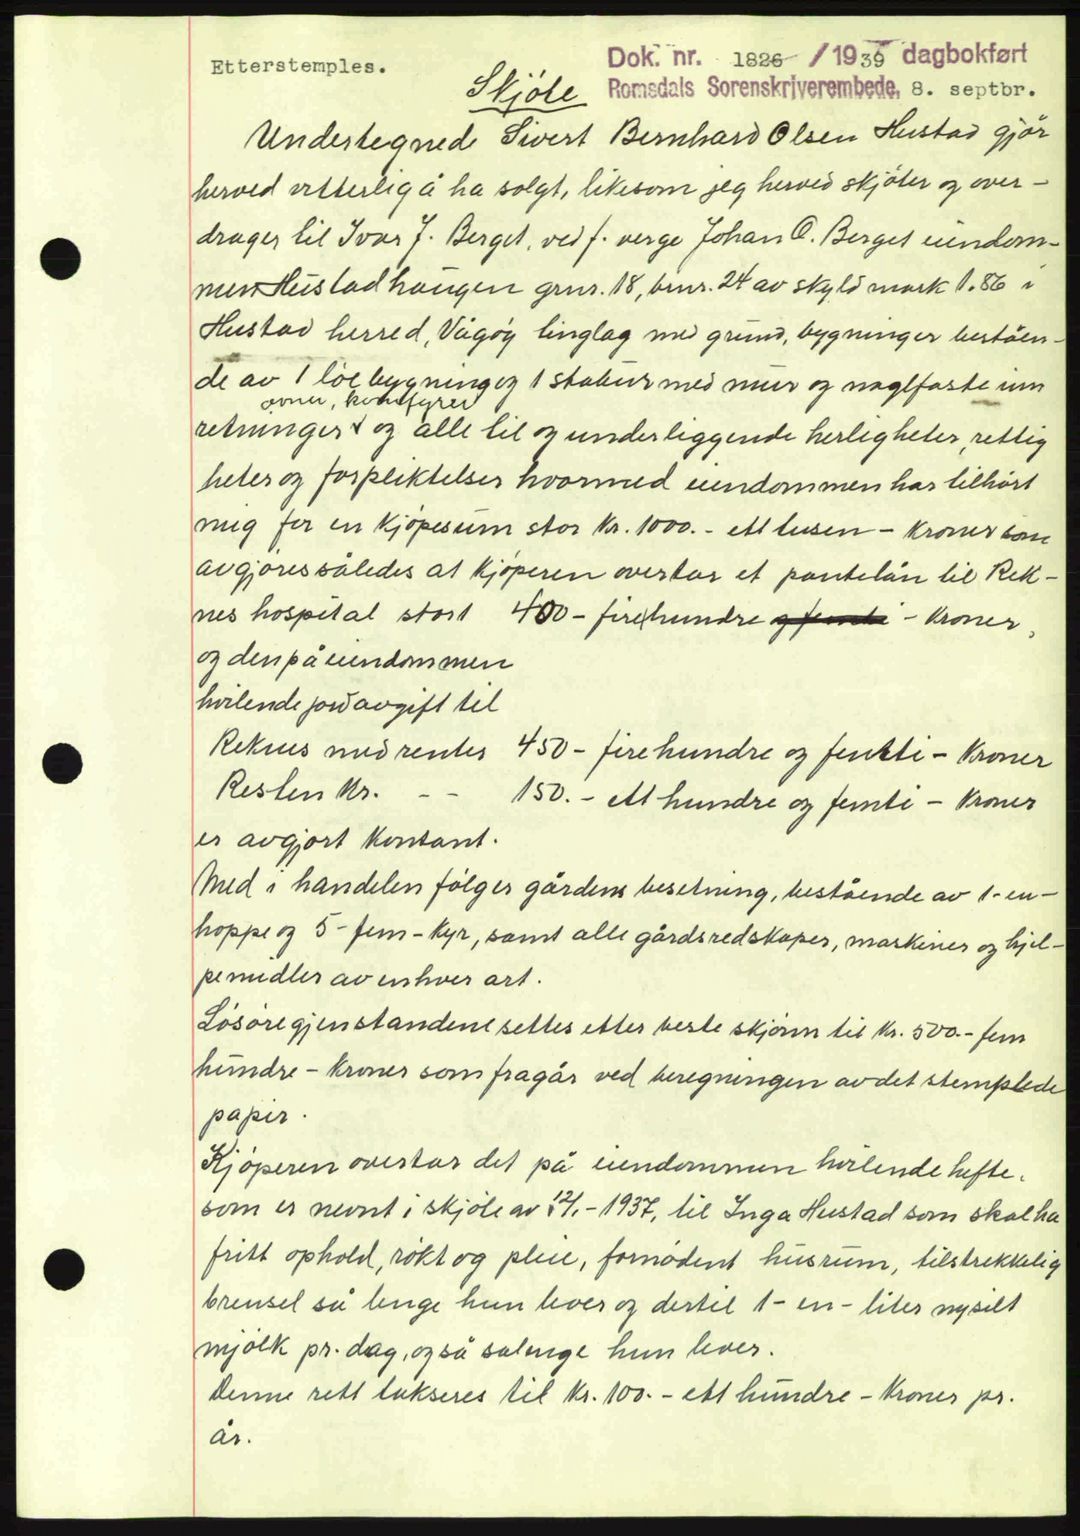 Etterstemples.
Dok. nr. 1826 / 1939 dagbokført
Romsdals Sorenskriverembede, 8. septbr.
Skjöte
Undertegnede Sivert Bernhard Olsen Hustad gjör
herved vitterlig å ha solgt, likesom jeg herved skjöter og over-
drager til Ivar J. Berget, ved f. verge Johan O. Berget eiendom-
men Hustadhaugen grnr. 18, brnr. 24 av skyld mark 1.86 i
Hustad herred, Vågöy tinglag med grund, bygninger beståen-
de av 1 löebygning og 1 stabur med mur og naglfaste inn
ovner, komfyrer
retninger og alle til og underliggende herligheter, rettig
heter og forpliktelser hvormed eiendommen har tilhört
mig for en kjöpesum stor kr. 1000.- ett tusen - kroner som
avgjöres således at kjöperen overtar et pantelån til Rek-
nes hospital stort 400 - firehundre og femti - kroner,
og den på eiendommen
hvilende jordavgift til
Reknes med renter 450 - firehundre og femti - kroner
Resten kr. - - 150. - ett hundre og femti - kroner
er avgjort kontant.
Med i handelen fölger gårdens besetning, bestående av 1-en-
hoppe og 5 - fem - kyr, samt alle gårdsredskaper, maskiner og hjel-
pemidler av enhver art.
Lösöregjenstandene settes etter beste skjönn til kr. 500.- fem
hundre - kroner som fragår ved beregningen av det stemplede
papir.
Kjöperen overtar det på eiendommen hvilende hefte,
som er nevnt i skjöte av - 1937, til Inga Hustad som skal ha
fritt ophold, rökt og pleie, fornödent husrum, tilstrekkelig
brensel så lenge hun lever og dertil 1 - en - liter nysilt
mjölk pr. dag, også solenge hun lever.
Denne rett takseres til kr. 100.- ett hundre - kroner pr.
år.